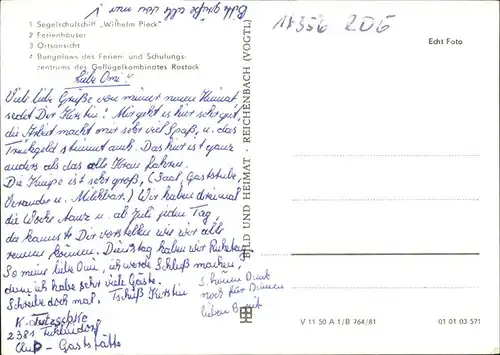 Bitte grüße alle von mir
1 Segelschulschiff „Wilhelm Pieck"
2 Ferienhäuser
3 Ortsansicht
4 Bungalows des Ferien- und Schulungs-
zentrums des Geflügelkombinates Rostock
Liebe Omi!
Viele liebe Grüße von meiner neuen Heimat,
sendet Dir Kerstin! Mir geht es hier sehr gut,
die Arbeit macht mir sehr viel Spaß, u. das
Trinkgeld stimmt auch. Das hier ist ganz
anders als das alte Kram fahren.
Die Kneipe ist sehr groß, (Saal, Gaststube,
Veranda u. Milchbar.) Wir haben dreimal
die Woche Tanz u. ab Juli jeden Tag,
da kannst Dir vorstellen wie wir alle
rennen können. Dienstag haben wir Ruhetag.
So meine liebe Omi, ich werde Schluß machen,
denn ich habe sehr viele Gäste.
Schreibe doch mal. Tschüß Kerstin
K.
2381
Gaststätte
Schönen Dank
noch für Deinen
lieben Brief
18356 2D5
Echt Foto
BILD UND HEIMAT · REICHENBACH (VOGTL)
V 11 50 A 1/B 764/81
01 01 03 571